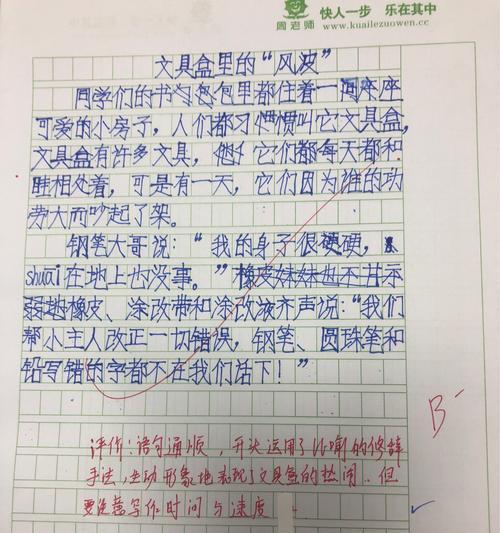 周老师
快人一步 乐在其中
www.kuailezuowen.cc
文具盒里的“风波”
同学们的书包里都住着一座座
可爱的小房子,人们都习惯叫它文具盒,
文具盒有许多文具,它们都每天都和
睦相处着,可是有一天,它们因为谁的功
劳大而吵起了架。
钢笔大哥说:“我的身子很硬,
shuāi在地上也没事。”橡皮妹妹也不甘示
弱地橡皮、涂改带和涂改液齐声说:“我们
帮小主人改正一切错误,钢笔、圆珠笔和
铅写错的字都不在我们话下!”
B-
评价:语句通顺,开头运用了比喻的修辞
手法,生动形象地表现了文具盒的热闹.但
要注意写作时间与速度